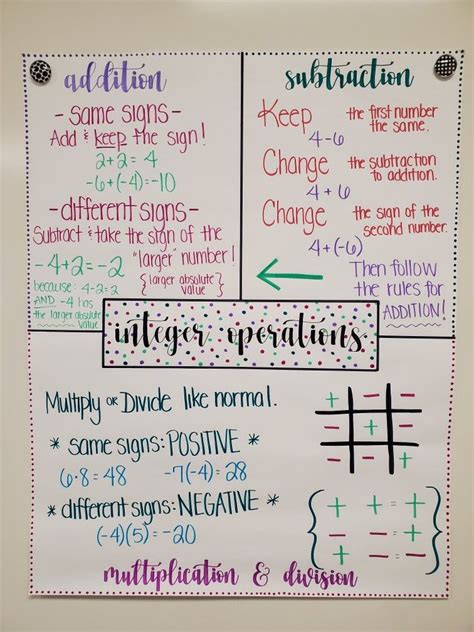 addition
- same signs -
Add & keep the sign!
2+2=4
-6+(-4)=-10
- different signs -
Subtract & take the sign of the
"larger" number!
-4+2=-2
{larger absolute
value}
because: 4-2=2
AND -4 has
the larger absolute
value
subtraction
Keep the first number
the same.
4-6
Change the subtraction
to addition.
4+6
Change the sign of the
second number.
4+(-6)
Then follow
the rules for
ADDITION!
integer operations
Multiply OR Divide like normal.
* same signs: POSITIVE *
6·8=48 -7(-4)=28
* different signs: NEGATIVE *
(-4)(5)=-20
+ - -
- + -
- - +
+ + = +
- - = +
+ - = -
multiplication & division